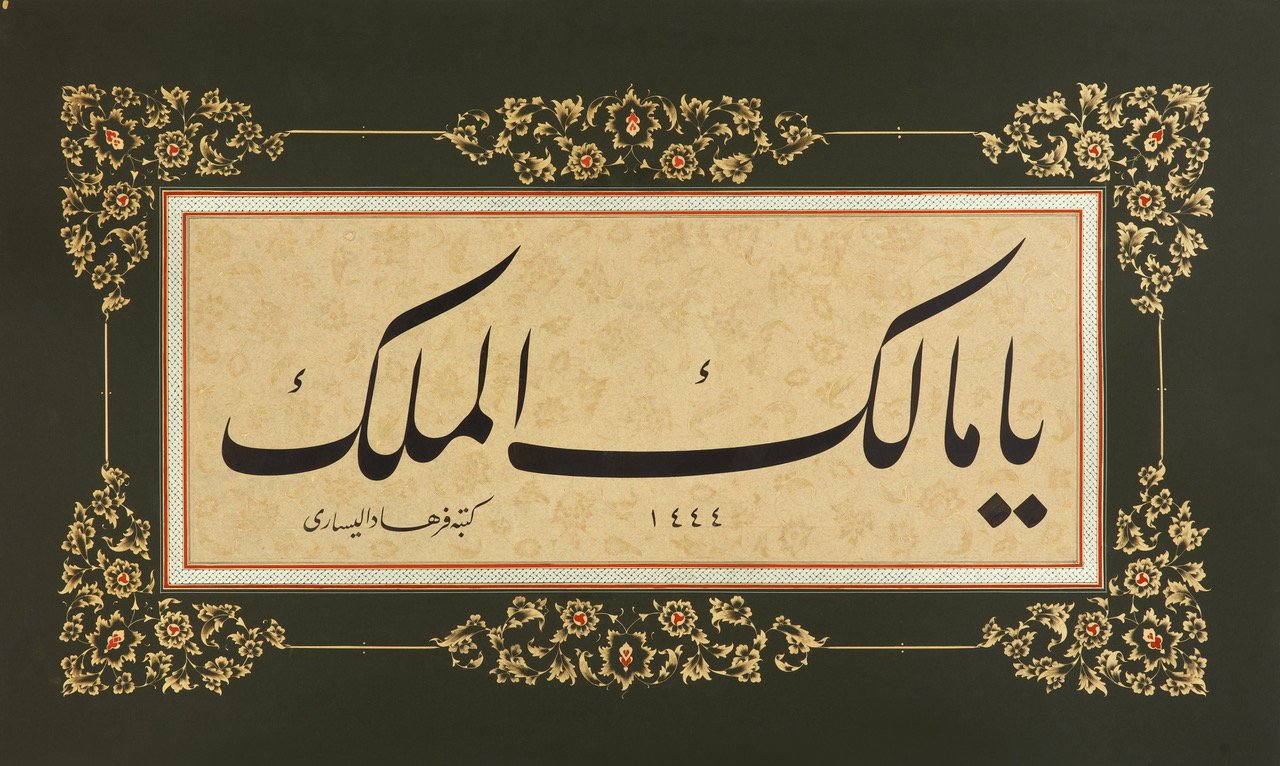 يا مالك الملك
١٤٤٤
كتبه فرهاد اليساري